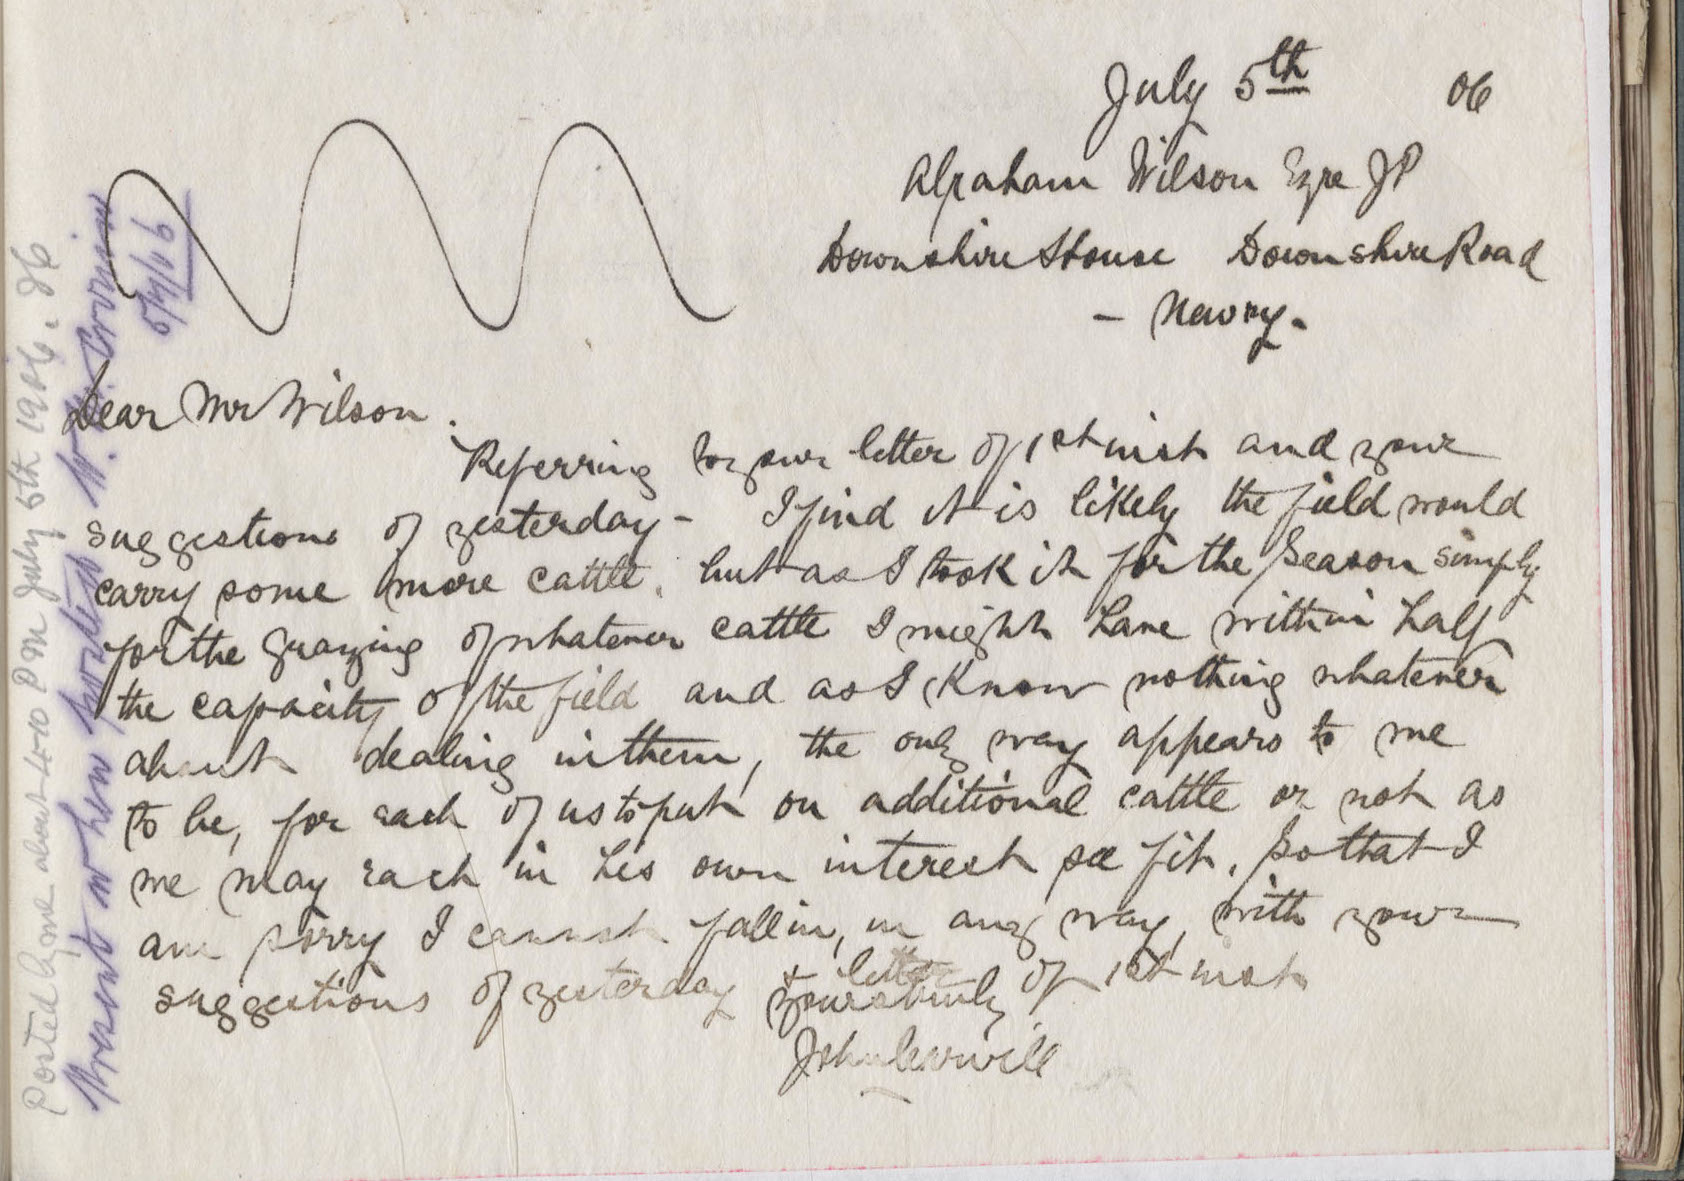 July 5th 06
Abraham Wilson Esqre JP
Downshire House Downshire Road
- Newry.
Dear Mr Wilson.
Referring to your letter of 1st inst and your
suggestions of yesterday - I find it is likely the field would
carry some more cattle. but as I took it for the Season simply
for the grazing of whatever cattle I might have within half
the capacity of the field and as I know nothing whatever
about dealing in them, the only way appears to me
to be, for each of us to put on additional cattle or not as
we may each in his own interest see fit. So that I
am sorry I cannot fall in, in any way, with your
suggestions of yesterday & letter of 1st inst
Yours truly
John
Posted by me about 4.40 PM July 5th 1906. JC
Present when posted W. Cronin
5/7/06